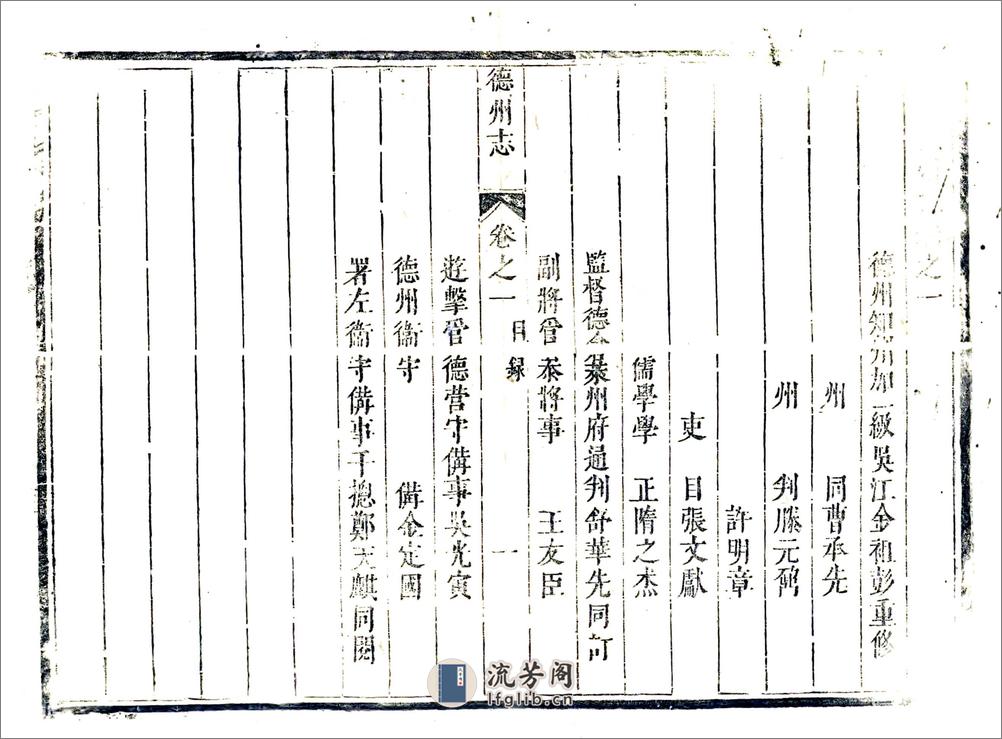 之一
德州知州加一級吳江金祖彭重修
州同曹承先
州判滕元鼐
許明章
吏目張文獻
儒學學正隋之杰
監督德倉萊州府通判舒華先同訂
副將管叅將事王友臣
德州志 卷之一 目錄 一
遊擊管德營守備事吳光寅
德州衞守備金定國
署左衞守備事千總鄭天麒同閱
流芳阁
lfglib.cn